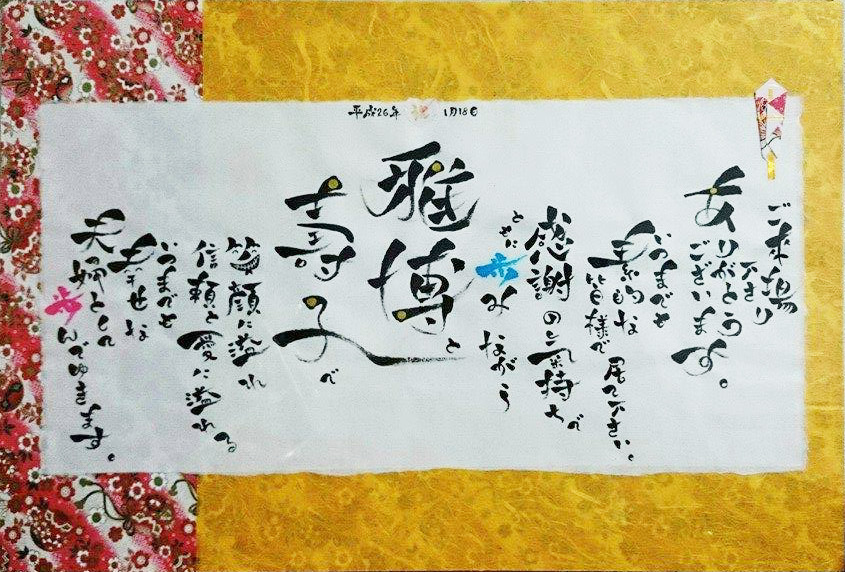 平成26年 祝 1月18日
ご来場
下さり
ありがとう
ございます。
いつまでも
素的な
皆様で
居て下さい。
感謝の気持ちで
ともに歩みながら
雅博と
寿子で
笑顔に溢れ
信頼と愛に溢れる
いつまでも
幸せな
夫婦として
歩んでゆきます。